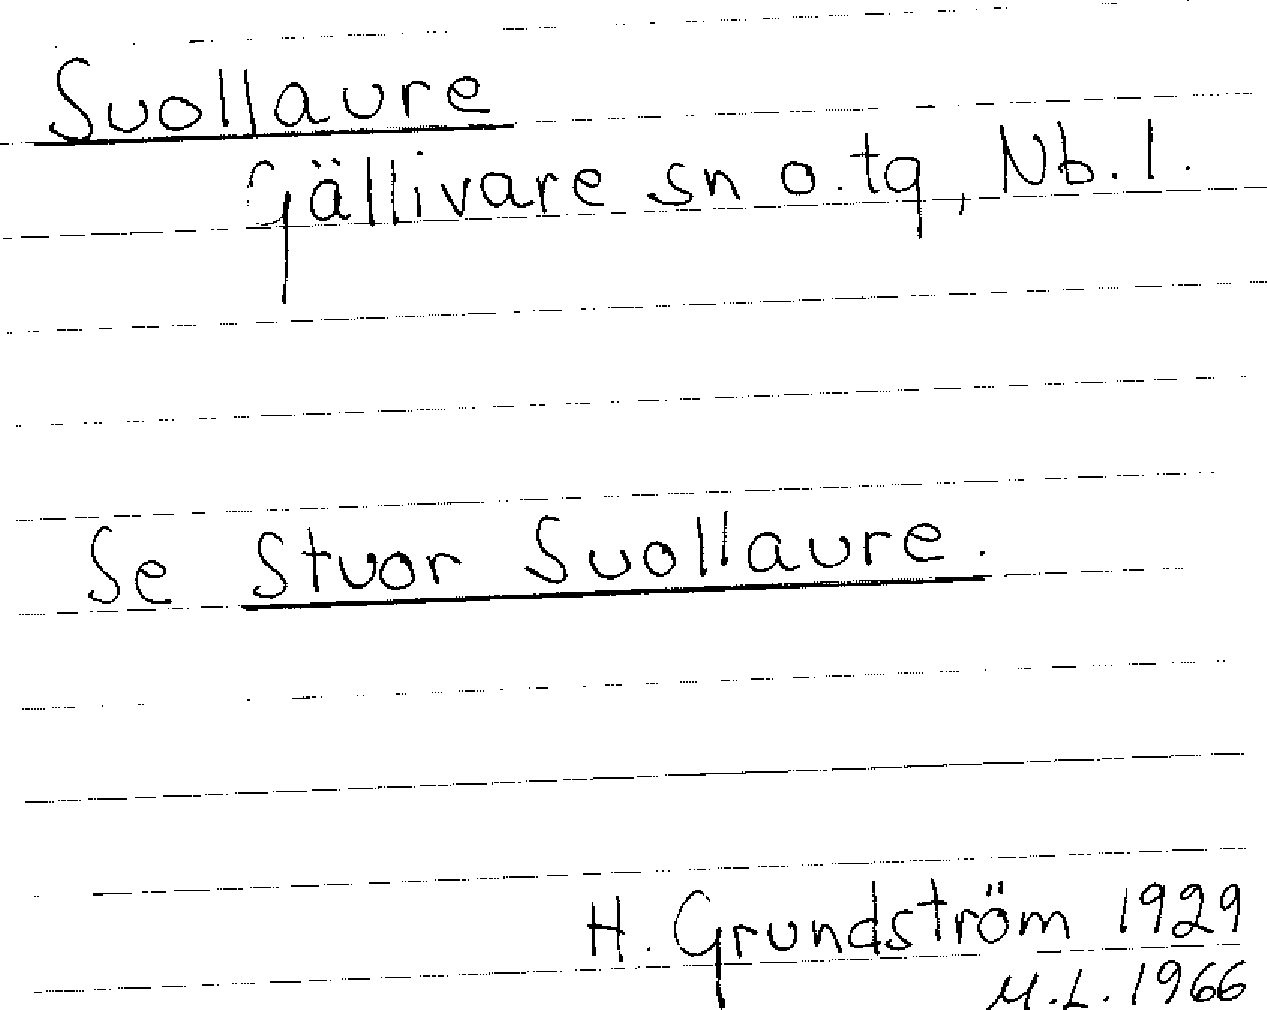 Suollaure
Gällivare sn o. tg, Nb. l.
Se Stuor Suollaure.
H. Grundström 1929
M.L. 1966